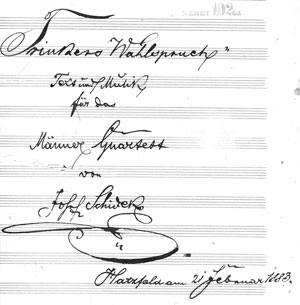 Trinkers Wahlspruch"
Text und Musik
für das
Männer Quartett
von
Josef Schidek
Hatzfeld am 2 Februar 1883.